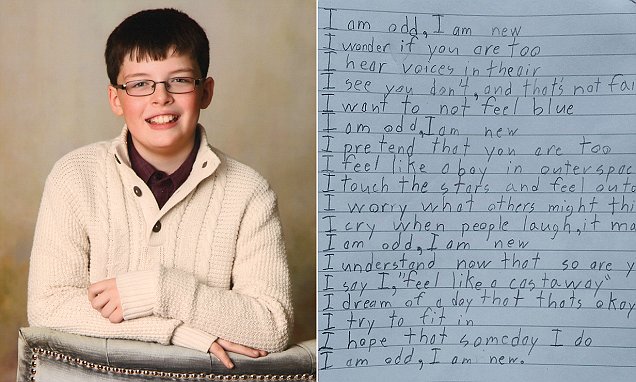 I am odd, I am new
I wonder if you are too
I hear voices in the air
I see you don't, and that's not fair
I want to not feel blue
I am odd, I am new
I pretend that you are too
I feel like a boy in outer spac
I touch the stars and feel out
I worry what others might thi
I cry when people laugh, it ma
I am odd, I am new
I understand now that so are y
I say I, "feel like a castaway"
I dream of a day that thats okay
I try to fit in
I hope that someday I do
I am odd, I am new.